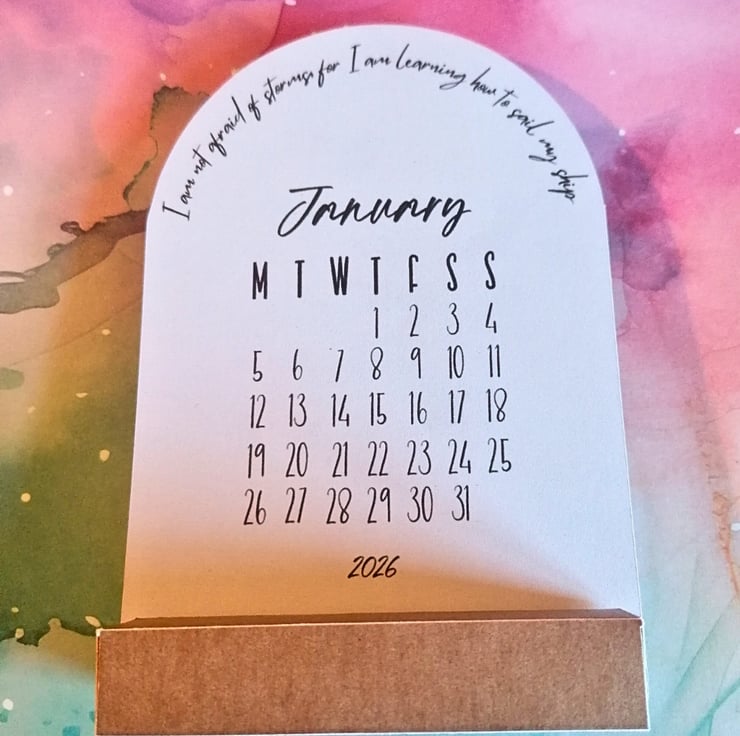 I am not afraid of storms, for I am learning how to sail my ship
January
M T W T F S S
1 2 3 4
5 6 7 8 9 10 11
12 13 14 15 16 17 18
19 20 21 22 23 24 25
26 27 28 29 30 31
2026